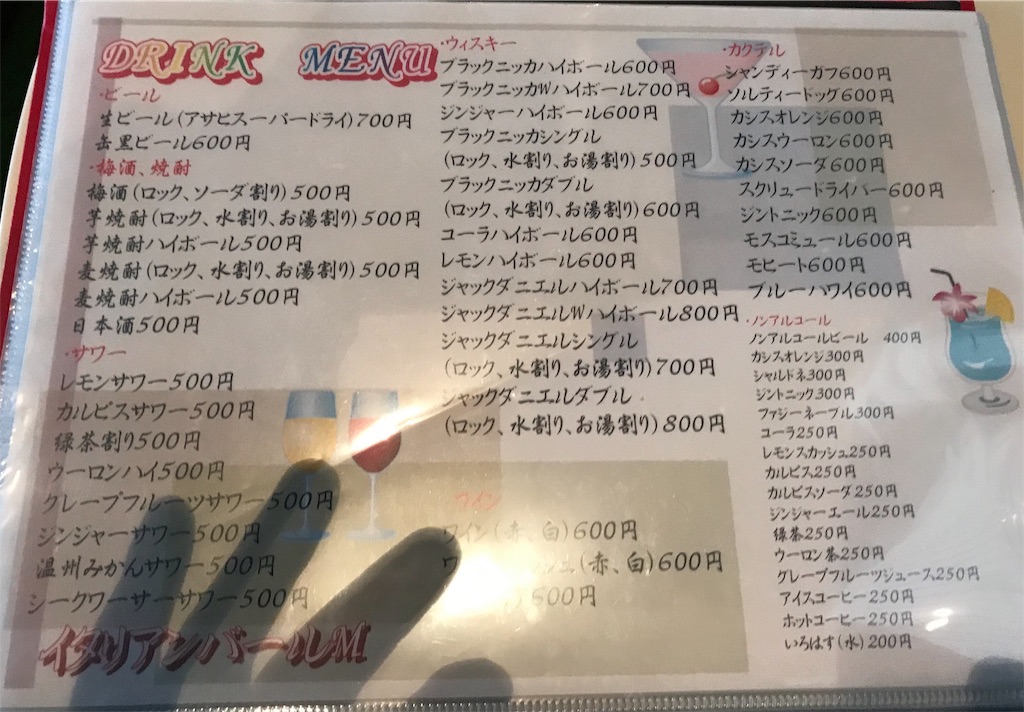 DRINK MENU
・ビール
生ビール(アサヒスーパードライ)700円
缶黒ビール600円
・梅酒、焼酎
梅酒(ロック、ソーダ割り)500円
芋焼酎(ロック、水割り、お湯割り)500円
芋焼酎ハイボール500円
麦焼酎(ロック、水割り、お湯割り)500円
麦焼酎ハイボール500円
日本酒500円
・サワー
レモンサワー500円
カルピスサワー500円
緑茶割り500円
ウーロンハイ500円
グレープフルーツサワー500円
ジンジャーサワー500円
温州みかんサワー500円
シークワーサーサワー500円
イタリアンバールM
・ウィスキー
ブラックニッカハイボール600円
ブラックニッカWハイボール700円
ジンジャーハイボール600円
ブラックニッカシングル
(ロック、水割り、お湯割り)500円
ブラックニッカダブル
(ロック、水割り、お湯割り)600円
コーラハイボール600円
レモンハイボール600円
ジャックダニエルハイボール700円
ジャックダニエルWハイボール800円
ジャックダニエルシングル
(ロック、水割り、お湯割り)700円
ジャックダニエルダブル
(ロック、水割り、お湯割り)800円
ワイン
ワイン(赤、白)600円
(赤、白)600円
600円
・カクテル
シャンディーガフ600円
ソルティードッグ600円
カシスオレンジ600円
カシスウーロン600円
カシスソーダ600円
スクリュードライバー600円
ジントニック600円
モスコミュール600円
モヒート600円
ブルーハワイ600円
・ノンアルコール
ノンアルコールビール 400円
カシスオレンジ300円
シャルドネ300円
ジントニック300円
ファジーネーブル300円
コーラ250円
レモンスカッシュ250円
カルピス250円
カルピスソーダ250円
ジンジャーエール250円
緑茶250円
ウーロン茶250円
グレープフルーツジュース250円
アイスコーヒー250円
ホットコーヒー250円
いろはす(水)200円